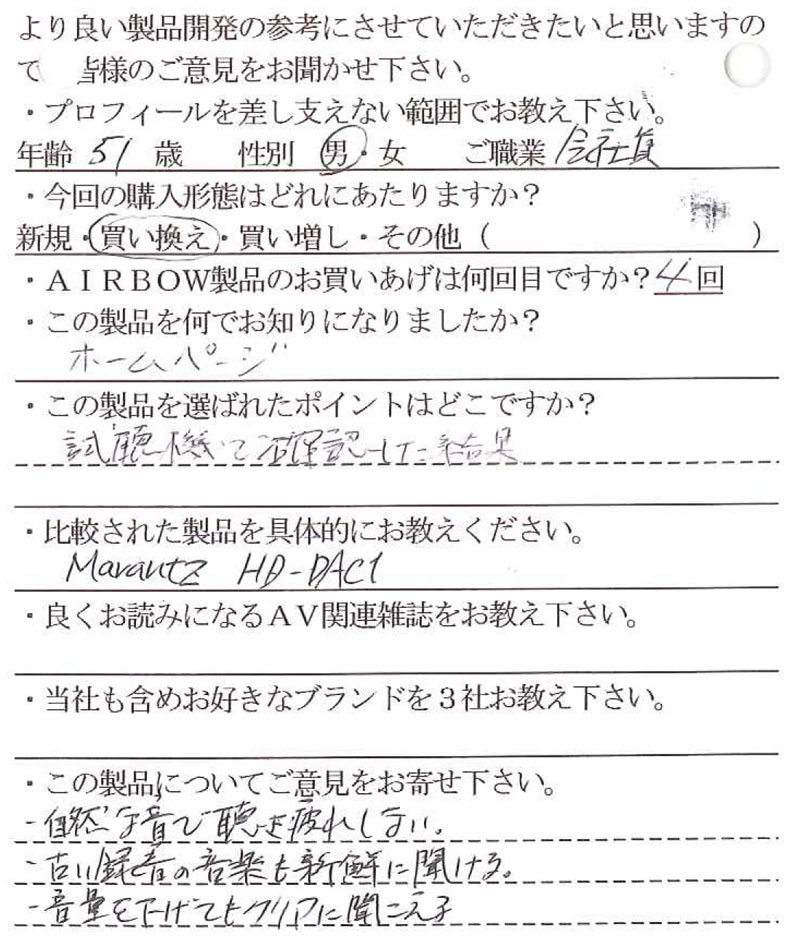 より良い製品開発の参考にさせていただきたいと思いますの
で 皆様のご意見をお聞かせ下さい。
・プロフィールを差し支えない範囲でお教え下さい。
年齢 51 歳 性別 男・女 ご職業 会社員
・今回の購入形態はどれにあたりますか？
新規・買い換え・買い増し・その他（ ）
・ＡＩＲＢＯＷ製品のお買いあげは何回目ですか？4回
・この製品を何でお知りになりましたか？
ホームページ
・この製品を選ばれたポイントはどこですか？
試聴機で確認した結果
・比較された製品を具体的にお教えください。
Marantz HD-DAC1
・良くお読みになるＡＶ関連雑誌をお教え下さい。
・当社も含めお好きなブランドを３社お教え下さい。
・この製品についてご意見をお寄せ下さい。
-自然な音で聴き疲れしない。
-古い録音の音楽も新鮮に聞ける。
-音量を下げてもクリアに聞こえる